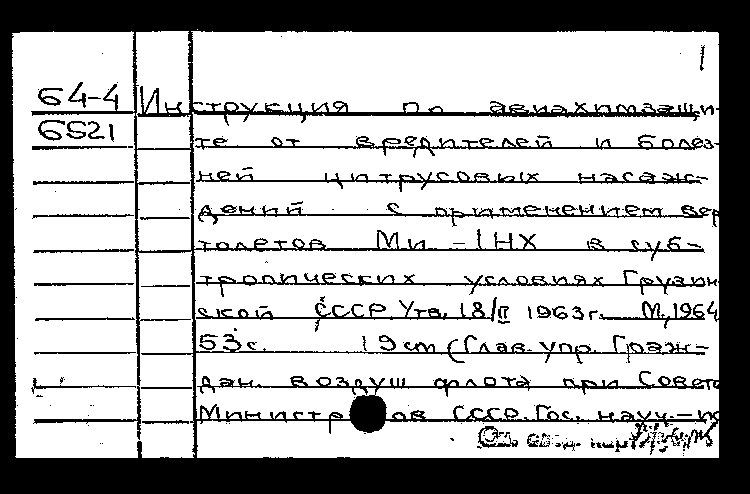 1
64-4 Инструкция по авиахимзащи-
6521 те от вредителей и болез-
ней цитрусовых насаж-
дений с применением вер
толетов Ми-1НХ в суб-
тропических условиях Грузин
ской ССР. Утв. 18/II 1963г. М., 1964
53с. 19см (Глав. упр. Граж-
дан. воздуш флота при Совете
Министров СССР. Гос. науч.-и
См. след. карт.